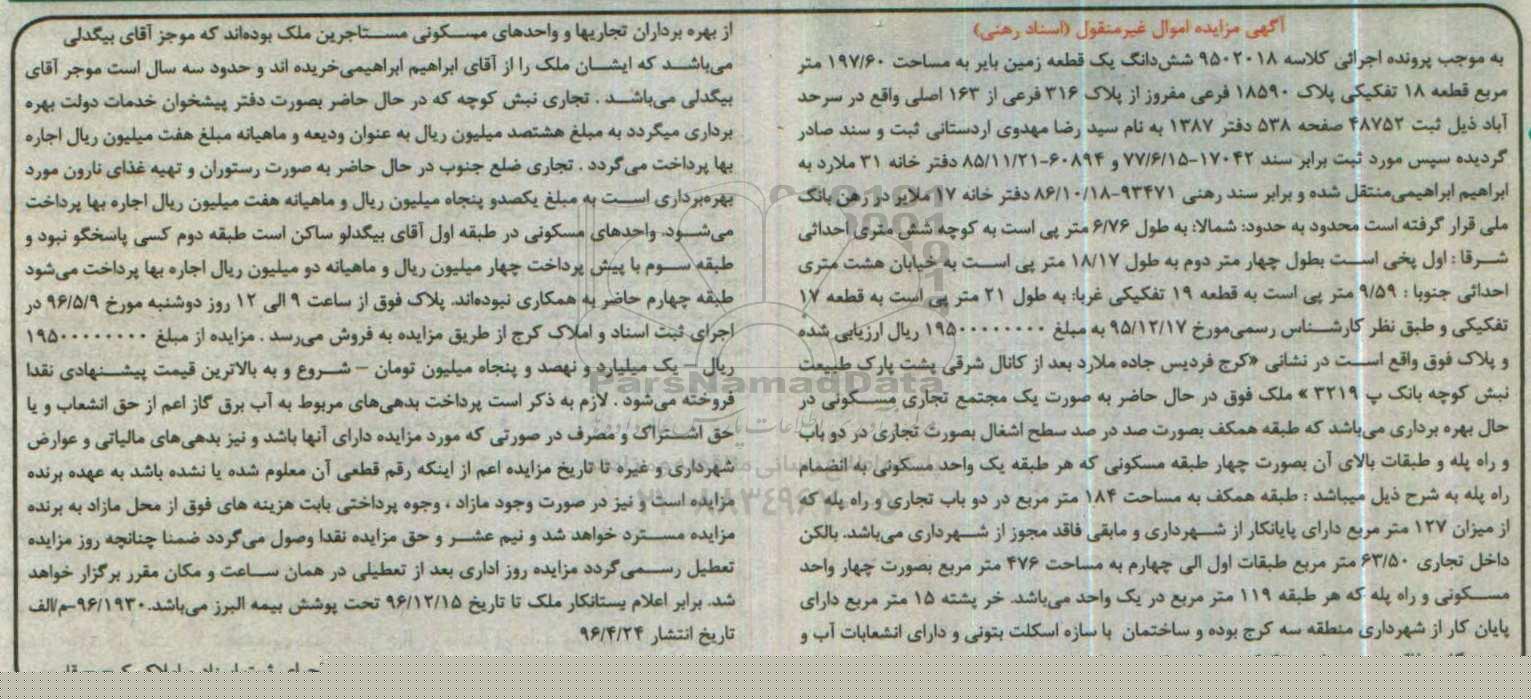 آگهی مزایده اموال غیرمنقول (اسناد رهنی)
به موجب پرونده اجرائی کلاسه ۹۵۰۲۰۱۸ شش‌دانگ یک قطعه زمین بایر به مساحت ۱۹۷/۶۰ متر
مربع قطعه ۱۸ تفکیکی پلاک ۱۸۵۹۰ فرعی مفروز از پلاک ۳۱۶ فرعی از ۱۶۳ اصلی واقع در سرحد
آباد ذیل ثبت ۴۸۷۵۲ صفحه ۵۳۸ دفتر ۱۳۸۷ به نام سید رضا مهدوی اردستانی ثبت و سند صادر
گردیده سپس مورد ثبت برابر سند ۱۷۰۴۲-۷۷/۶/۱۵ و ۶۰۸۹۴-۸۵/۱۱/۲۱ دفتر خانه ۳۱ ملارد به
ابراهیم ابراهیمی‌منتقل شده و برابر سند رهنی ۹۳۴۷۱-۸۶/۱۰/۱۸ دفتر خانه ۱۷ ملایر در رهن بانک
ملی قرار گرفته است محدود به حدود: شمالا: به طول ۶/۷۶ متر پی است به کوچه شش متری احداثی
شرقا : اول پخی است بطول چهار متر دوم به طول ۱۸/۱۷ متر پی است به خیابان هشت متری
احداثی جنوبا : ۹/۵۹ متر پی است به قطعه ۱۹ تفکیکی غربا: به طول ۲۱ متر پی است به قطعه ۱۷
تفکیکی و طبق نظر کارشناس رسمی‌مورخ ۹۵/۱۲/۱۷ به مبلغ ۱۹۵۰۰۰۰۰۰۰۰ ریال ارزیابی شده
و پلاک فوق واقع است در نشانی «کرج فردیس جاده ملارد بعد از کانال شرقی پشت پارک طبیعت
نبش کوچه بانک پ ۳۲۱۹ » ملک فوق در حال حاضر به صورت یک مجتمع تجاری مسکونی در
حال بهره برداری می‌باشد که طبقه همکف بصورت صد در صد سطح اشغال بصورت تجاری در دو باب
و راه پله و طبقات بالای آن بصورت چهار طبقه مسکونی که هر طبقه یک واحد مسکونی به انضمام
راه پله به شرح ذیل میباشد : طبقه همکف به مساحت ۱۸۴ متر مربع در دو باب تجاری و راه پله که
از میزان ۱۲۷ متر مربع دارای پایانکار از شهرداری و مابقی فاقد مجوز از شهرداری می‌باشد. بالکن
داخل تجاری ۶۳/۵۰ متر مربع طبقات اول الی چهارم به مساحت ۴۷۶ متر مربع بصورت چهار واحد
مسکونی و راه پله که هر طبقه ۱۱۹ متر مربع در یک واحد می‌باشد. خر پشته ۱۵ متر مربع دارای
پایان کار از شهرداری منطقه سه کرج بوده و ساختمان با سازه اسکلت بتونی و دارای انشعابات آب و
از بهره برداران تجاریها و واحدهای مسکونی مستاجرین ملک بوده‌اند که موجز آقای بیگدلی
می‌باشد که ایشان ملک را از آقای ابراهیم ابراهیمی‌خریده اند و حدود سه سال است موجر آقای
بیگدلی می‌باشد . تجاری نبش کوچه که در حال حاضر بصورت دفتر پیشخوان خدمات دولت بهره
برداری میگردد به مبلغ هشتصد میلیون ریال به عنوان ودیعه و ماهیانه مبلغ هفت میلیون ریال اجاره
بها پرداخت می‌گردد . تجاری ضلع جنوب در حال حاضر به صورت رستوران و تهیه غذای نارون مورد
بهره‌برداری است به مبلغ یکصدو پنجاه میلیون ریال و ماهیانه هفت میلیون ریال اجاره بها پرداخت
می‌شود. واحدهای مسکونی در طبقه اول آقای بیگدلو ساکن است طبقه دوم کسی پاسخگو نبود و
طبقه سوم با پیش پرداخت چهار میلیون ریال و ماهیانه دو میلیون ریال اجاره بها پرداخت می‌شود
طبقه چهارم حاضر به همکاری نبوده‌اند. پلاک فوق از ساعت ۹ الی ۱۲ روز دوشنبه مورخ ۹۶/۵/۹ در
اجرای ثبت اسناد و املاک کرج از طریق مزایده به فروش می‌رسد . مزایده از مبلغ ۱۹۵۰۰۰۰۰۰۰۰
ریال – یک میلیارد و نهصد و پنجاه میلیون تومان – شروع و به بالاترین قیمت پیشنهادی نقدا
فروخته می‌شود . لازم به ذکر است پرداخت بدهی‌های مربوط به آب برق گاز اعم از حق انشعاب و یا
حق اشتراک و مصرف در صورتی که مورد مزایده دارای آنها باشد و نیز بدهی‌های مالیاتی و عوارض
شهرداری و غیره تا تاریخ مزایده اعم از اینکه رقم قطعی آن معلوم شده یا نشده باشد به عهده برنده
مزایده است و نیز در صورت وجود مازاد ، وجوه پرداختی بابت هزینه های فوق از محل مازاد به برنده
مزایده مسترد خواهد شد و نیم عشر و حق مزایده نقدا وصول می‌گردد ضمنا چنانچه روز مزایده
تعطیل رسمی‌گردد مزایده روز اداری بعد از تعطیلی در همان ساعت و مکان مقرر برگزار خواهد
شد. برابر اعلام بستانکار ملک تا تاریخ ۹۶/۱۲/۱۵ تحت پوشش بیمه البرز می‌باشد.۹۶/۱۹۳۰-م/الف
تاریخ انتشار ۹۶/۴/۲۴
ParsNamadData